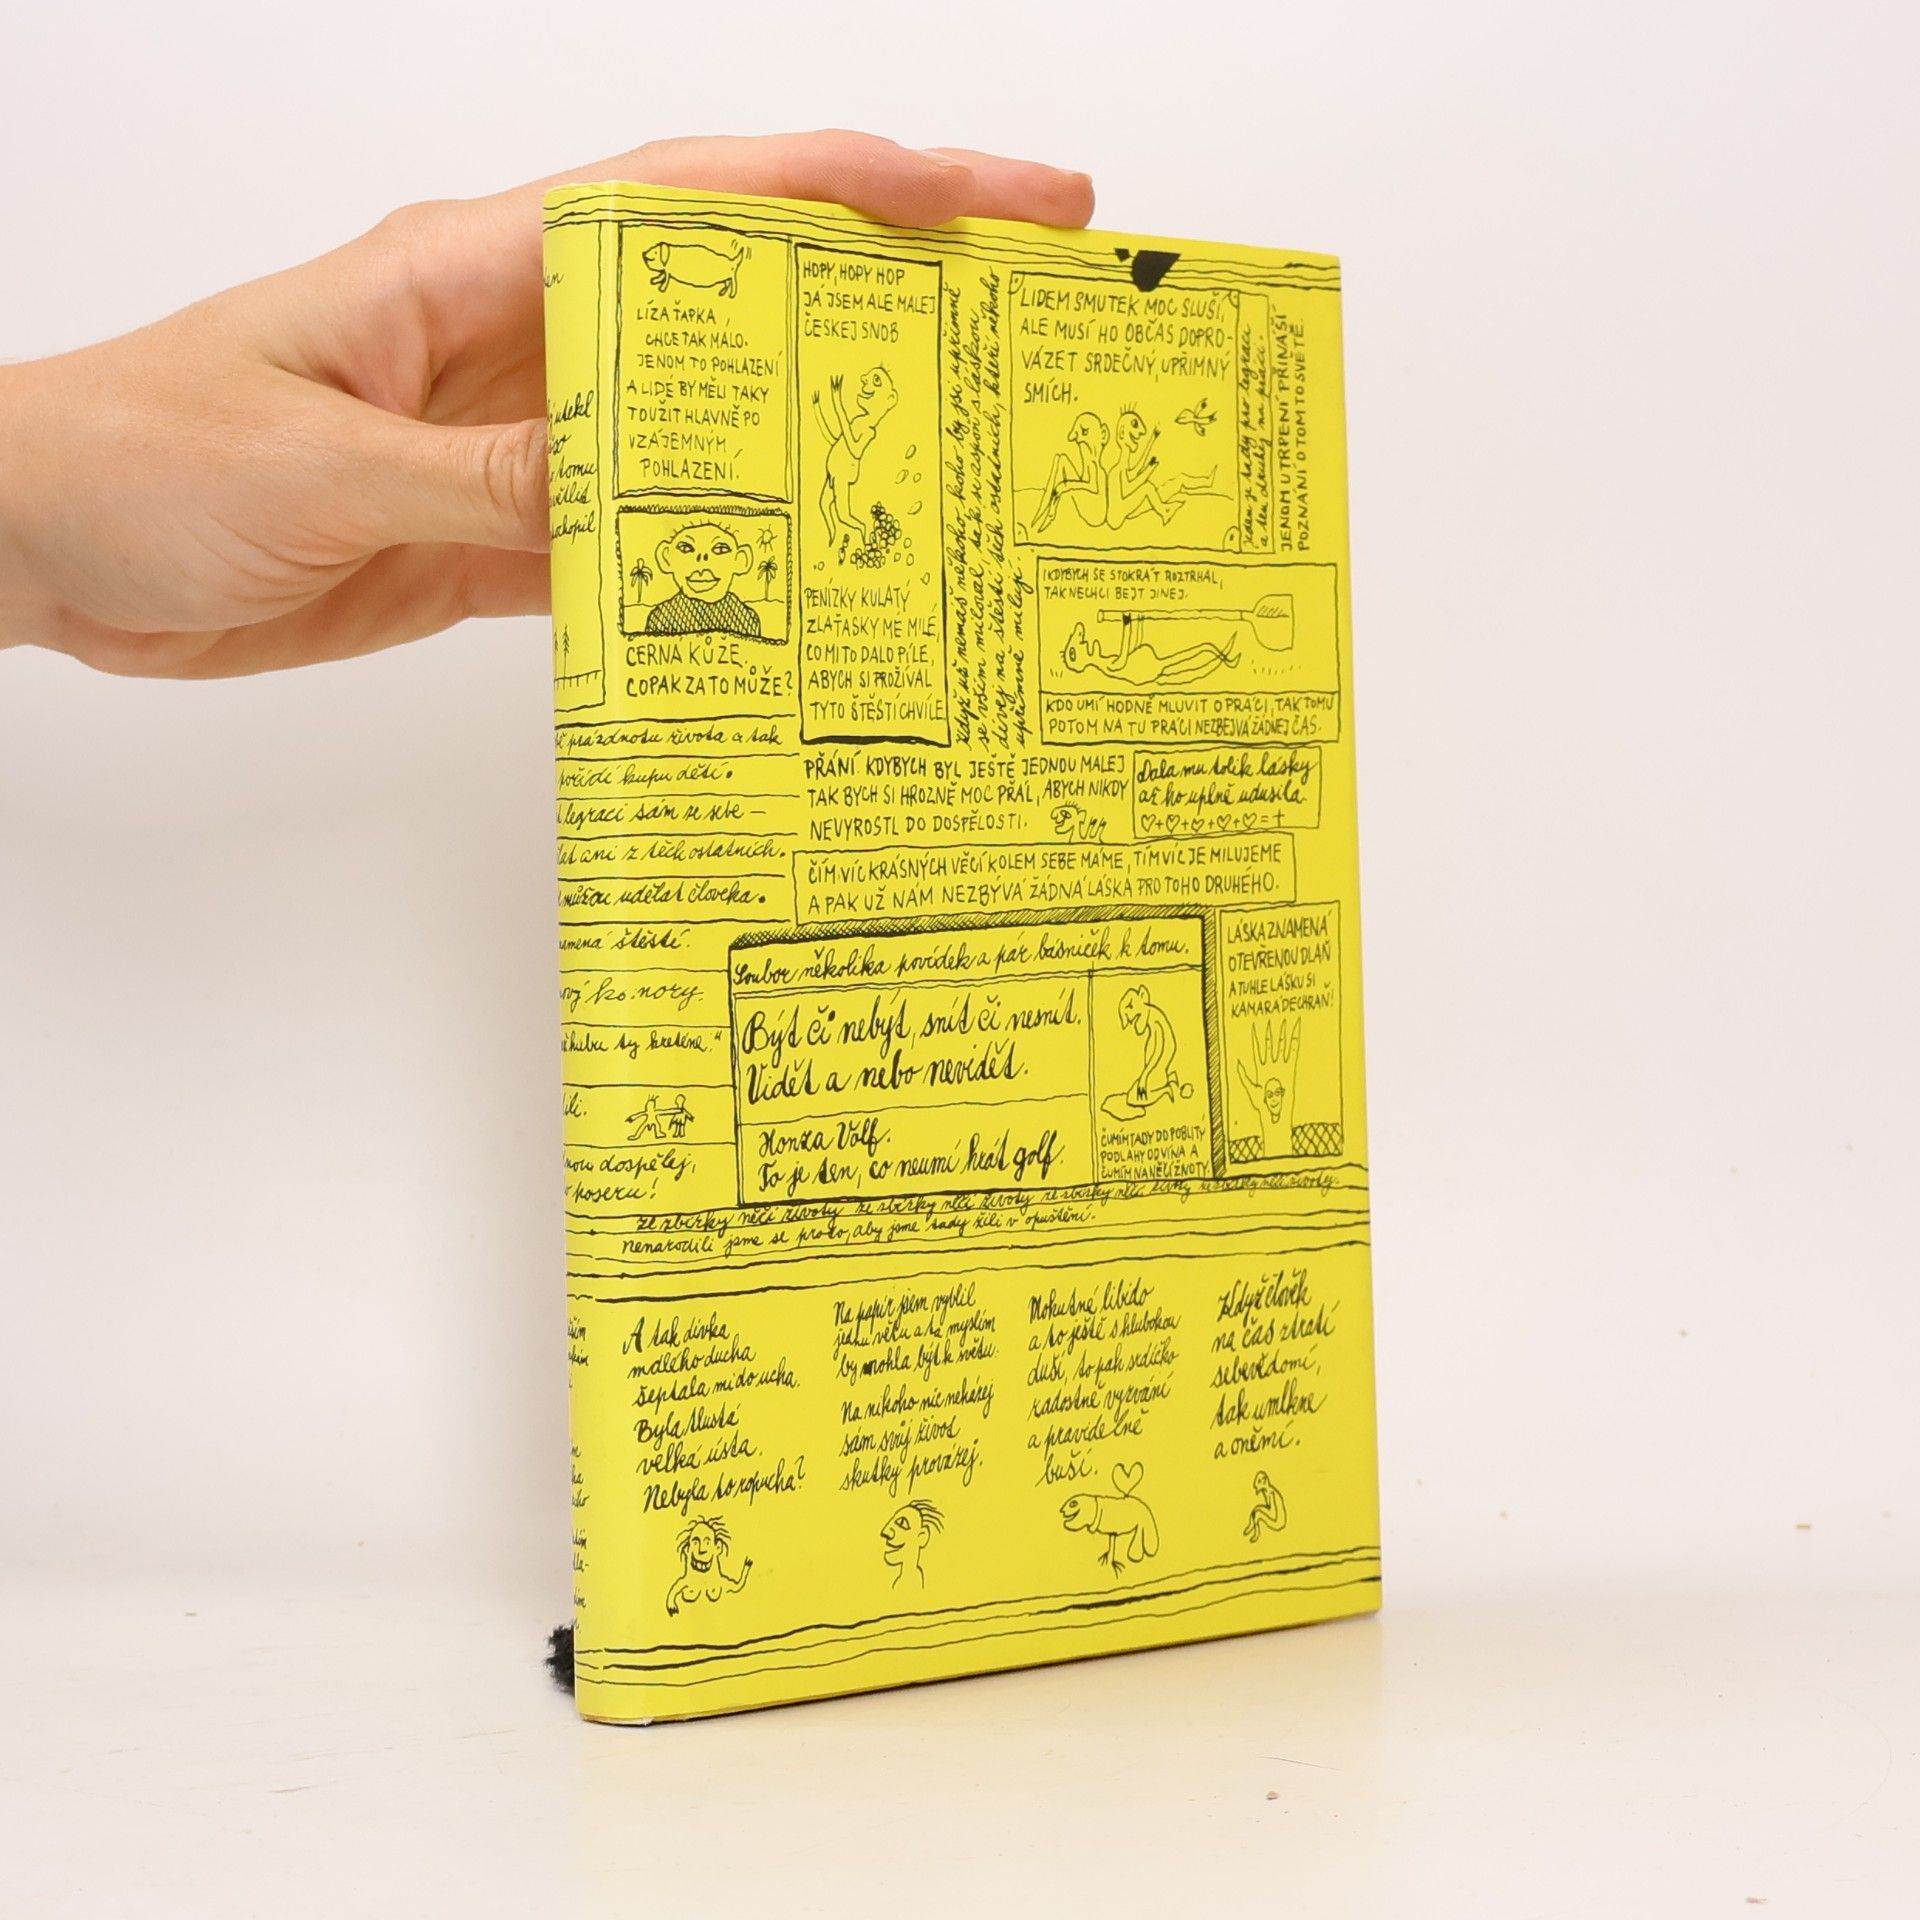 LÍZA ŤAPKA,
CHCE TAK MÁLO.
JENOM TO POHLAZENÍ
A LIDÉ BY MĚLI TAKY
TOUŽIT HLAVNĚ PO
VZÁJEMNÝM
POHLAZENÍ.
ČERNÁ KŮŽE.
COPAK ZA TO MŮŽE?
HOPY, HOPY HOP
JÁ JSEM ALE MALEJ
ČESKEJ SNOB
PENÍZKY KULATÝ
ZLAŤASKY MÉ MILÉ,
CO MI TO DALO PÍLE,
ABYCH SI PROŽÍVAL
TYTO ŠTĚSTÍ CHVÍLE
Když už nemáš někoho koho by jsi upřímně
se vším miloval, tak se aspoň s láskou
dívej na štěstí těch ostatních, kteří někoho
upřímně milují.
LIDEM SMUTEK MOC SLUŠÍ,
ALE MUSÍ HO OBČAS DOPRO-
VÁZET SRDEČNÝ, UPŘIMNÝ
SMÍCH.
Jeden je tady pro legraci
a ten druhý na práci.
JENOM UTRPENÍ PŘINÁŠÍ
POZNÁNÍ O TOMTO SVĚTĚ.
I KDYBYCH SE STOKRÁT ROZTRHAL,
TAK NECHCI BEJT JINEJ.
KDO UMÍ HODNĚ MLUVIT O PRÁCI, TAK TOMU
POTOM NA TU PRÁCI NEZBEJVÁ ŽÁDNEJ ČAS.
PŘÁNÍ. KDYBYCH BYL JEŠTĚ JEDNOU MALEJ
TAK BYCH SI HROZNĚ MOC PŘÁL, ABYCH NIKDY
NEVYROSTL DO DOSPĚLOSTI.
Dala mu tolik lásky
až ho uplně udusila.
♡+♡+♡+♡+♡=†
ČÍM VÍC KRÁSNÝCH VĚCÍ KOLEM SEBE MÁME, TÍM VÍC JE MILUJEME
A PAK UŽ NÁM NEZBÝVÁ ŽÁDNÁ LÁSKA PRO TOHO DRUHÉHO.
prázdnotu života a tak
pořídí kupu dětí.
legraci sám ze sebe –
ani z těch ostatních.
můžou udělat člověka.
štěstí.
ty kreténe."
dospělej,
Soubor několika povídek a pár básniček k tomu.
Být či nebýt, snít či nesnít.
Vidět a nebo nevidět.
Honza Volf.
To je ten, co neumí hrát golf.
ČUMÍM TADY DO POBLITÝ
PODLAHY OD VÍNA A
ČUMÍM NA NĚČÍ ŽIVOTY.
LÁSKA ZNAMENÁ
OTEVŘENOU DLAŇ
A TUHLE LÁSKU SI
KAMARÁDE CHRAŇ!
ze sbírky něčí životy ze sbírky něčí životy ze sbírky něčí životy ze sbírky něčí životy.
Nenarodili jsme se proto, aby jsme tady žili v opuštění.
A tak dívka
mdlého ducha
šeptala mi do ucha.
Byla tlustá
velká ústa.
Nebyla to ropucha?
Na papír jsem vyblil
jednu větu a ta myslím
by mohla být k světu.
Na nikoho nic neházej
sám svůj život
skutky provázej.
Mohutné libido
a to ještě s hlubokou
duší, to pak srdíčko
radostně vyzvání
a pravidelně
buší.
Když člověk
na čas ztratí
sebevědomí,
tak umlkne
a oněmí.